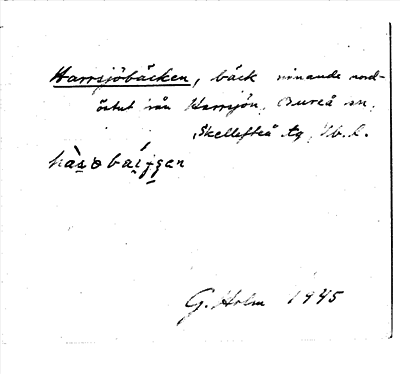 Harrsjöbäcken, bäck rinnande nord-
östut från Harrsjön, Bureå sn,
Skellefteå tg, Vb. l.
G. Holm 1945